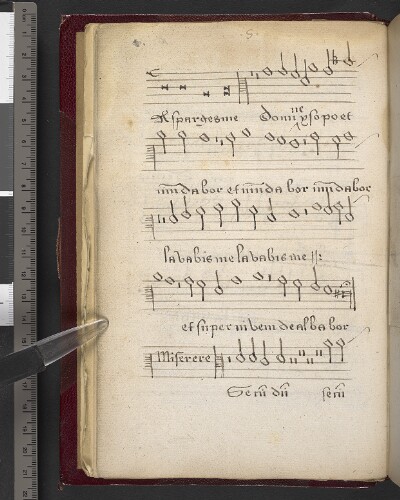 Aspargesme Domine ysopo et
mundabor et munda bor mundabor
lavabis me lavabis me ||:
et super nivem dealba bor
Miserere
Secũ dũ secũ